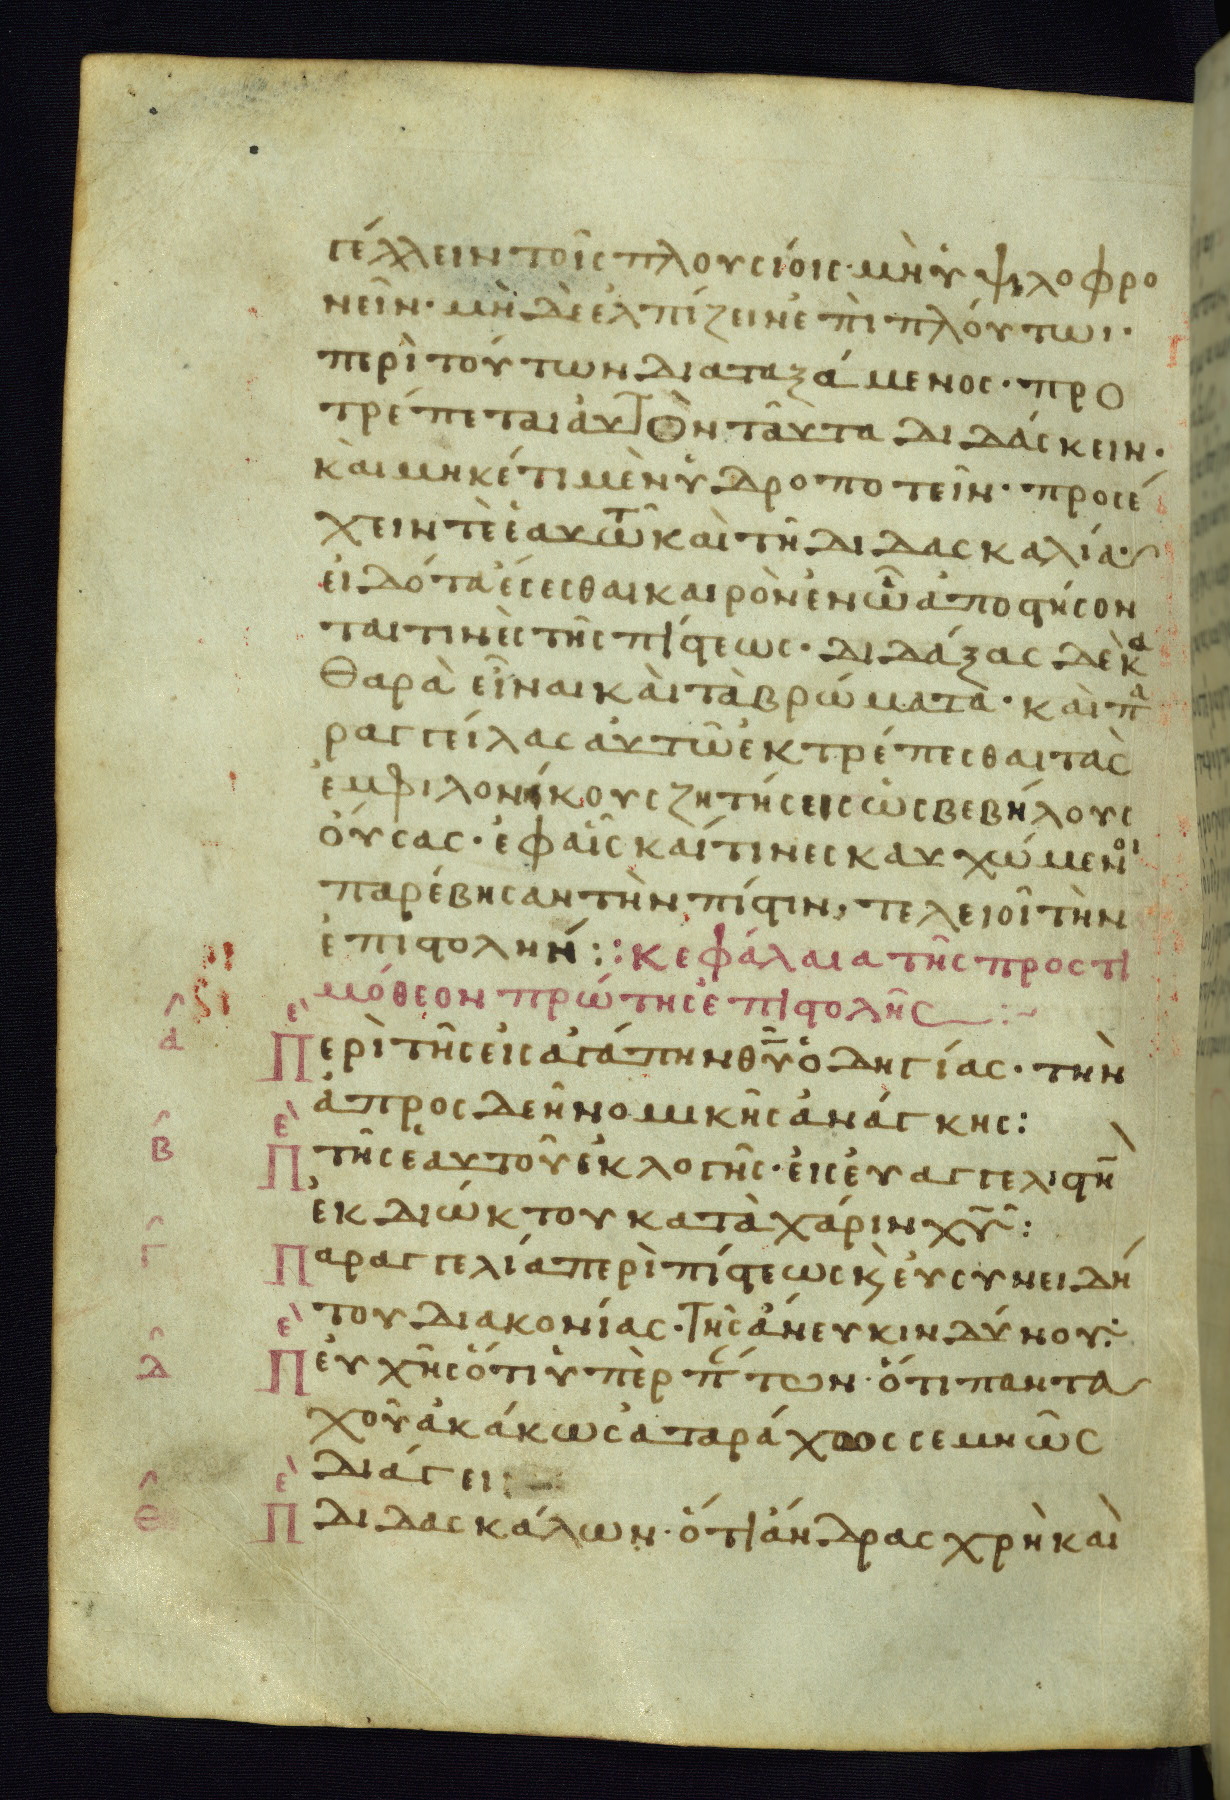 γέλλειν τοῖς πλουσίοις· μὴ ὑψιλοφρο
νεῖν· μὴ δὲ ἐλπίζειν ἐπὶ πλούτωι·
περὶ τούτων διαταξάμενος· προ
τρέπεται αὐτὸν ταῦτα διδάσκειν·
καὶ μηκέτι μὲν ὑδροποτεῖν· προσέ
χειν τὲ ἑαυτῶ καὶ τῆ διδασκαλία·
εἰδότα ἔσεσθαι καιρὸν ἐν ὧ ἀποστήσον
ταί τινὲς τῆς πίστεως· διδάξας δὲ κα
θαρὰ εἶναι καὶ τὰ βρώματα· καὶ πα
ραγγείλας αὐτῶ ἐκτρέπεσθαι τὰς
ἐμφιλονίκους ζητήσεις ὡς βεβήλους
οὔσας· ἐφ αἷς καί τινες καυχώμενοι
παρέβησαν τὴν πίστιν, τελειοῖ τὴν
ἐπιστολήν: :κεφάλαια τῆς προς τι
μόθεον πρώτης ἐπιστολῆς :~
α Περὶ τῆς εἰς ἀγάπην θυ ὁδηγίας· τὴν
ἀπροσδεῆ νομικῆς ἀνάγκης:
β Πε τῆς ἑαυτοῦ ἐκλογῆς· εἰς εὐαγγελιστὴ
ἐκ διώκτου κατὰ χάριν χυ:
γ Παραγγελία περὶ πίστεως κ εὐσυνειδή
του διακονίας· τῆς ἄνευ κινδύνου:
δ Πε εὐχῆς ὅτι ὑπὲρ πάντων· ὅτι παντα
χοῦ ἀκάκως ἀταράχως σεμνῶς
διάγει:
ε Πε διδασκάλων· ὅτι ἄνδρας χρὴ καὶ